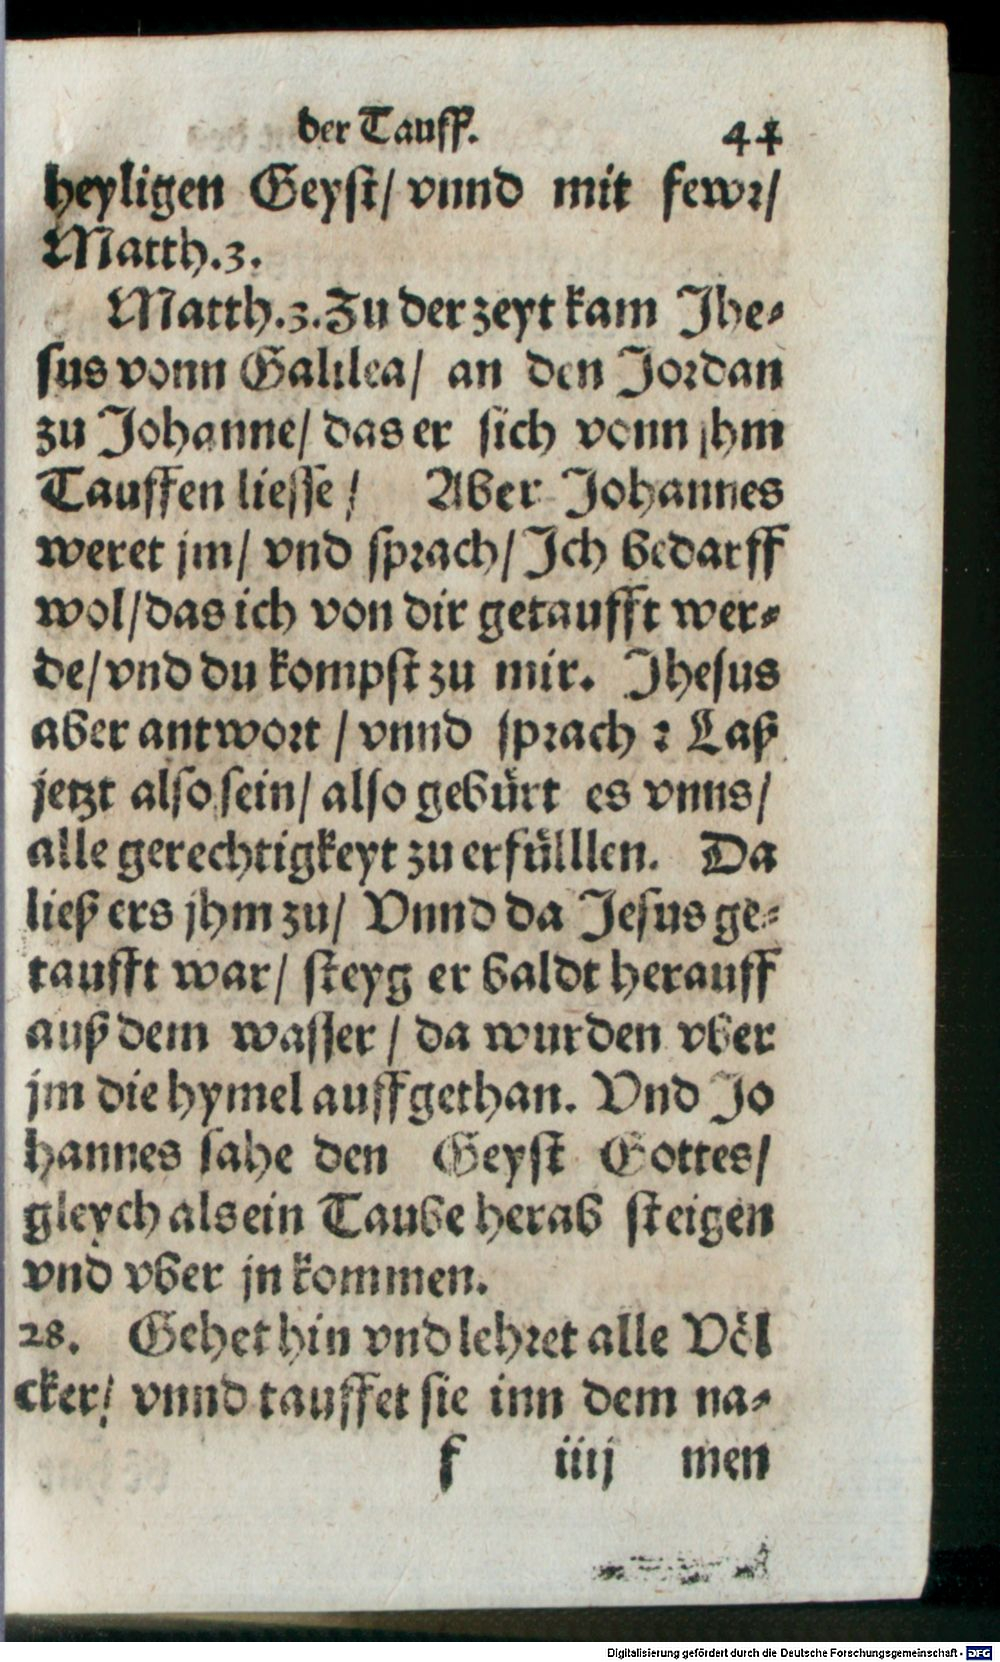 der Tauff. 44
heyligen Geyst/ vnnd mit fewr/
Matth.3.
Matth.3. Zu der zeyt kam Jhe-
sus vonn Galilea/ an den Jordan
zu Johanne/ das er sich vonn jhm
Tauffen liesse/ Aber Johannes
weret jm/ vnd sprach/ Ich bedarff
wol/ das ich von dir getaufft wer-
de/ vnd du kompst zu mir. Jhesus
aber antwort / vnnd sprach : Laß
jetzt also sein/ also gebürt es vnns/
alle gerechtigkeyt zu erfülllen. Da
ließ ers jhm zu/ Vnnd da Jesus ge-
taufft war/ steyg er baldt herauff
auß dem wasser / da wurden vber
jm die hymel auffgethan. Vnd Jo
hannes sahe den Geyst Gottes/
gleych als ein Taube herab steigen
vnd vber jn kommen.
28. Gehet hin vnd lehret alle Völ
cker/ vnnd tauffet sie inn dem na-
f iiij men
Digitalisierung gefördert durch die Deutsche Forschungsgemeinschaft - DFG